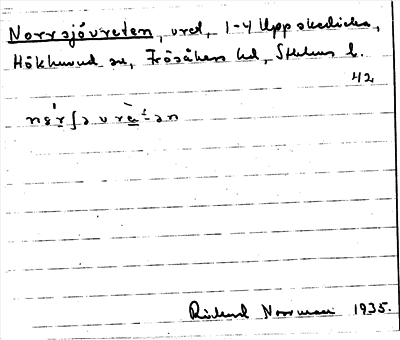 Norrsjövreten, vret, 1-4 Uppskedicka,
Hökhuvud sn, Frösåkers hd, Sthlms l.
42
Rickard Norrman 1935.